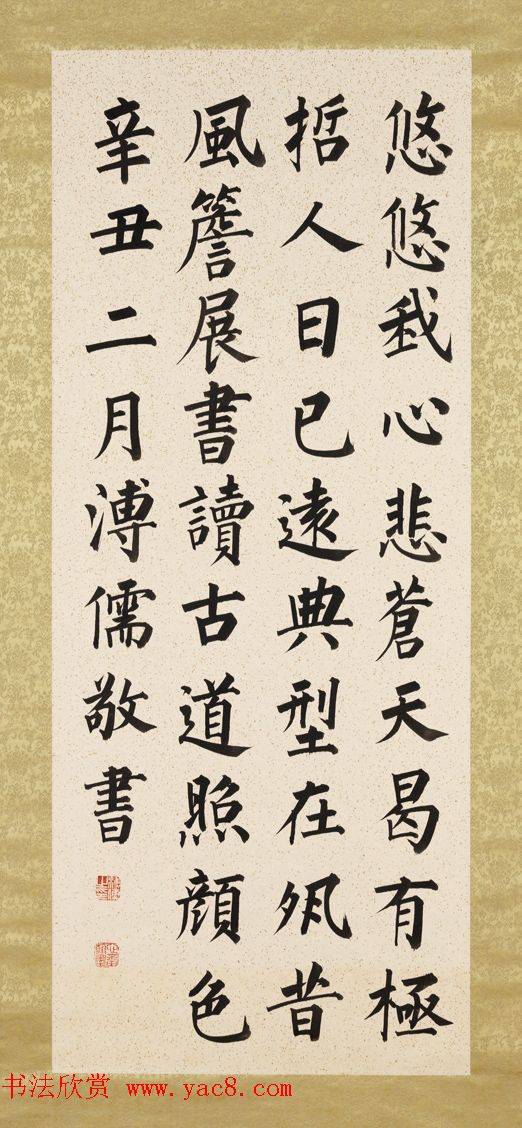 悠悠我心悲蒼天曷有極
哲人日已遠典型在夙昔
風簷展書讀古道照顔色
辛丑二月溥儒敬書
书法欣赏 www.yac8.com